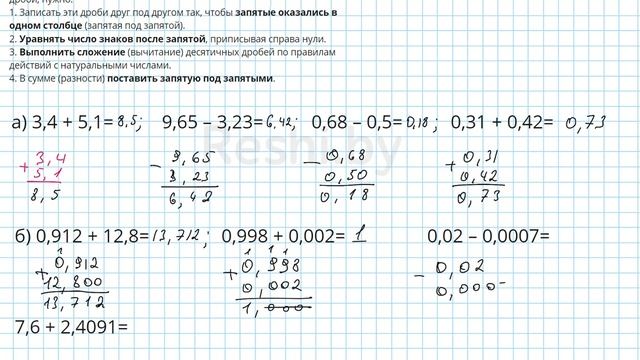 дроби, нужно:
1. Записать эти дроби друг под другом так, чтобы запятые оказались в
одном столбце (запятая под запятой).
2. Уравнять число знаков после запятой, приписывая справа нули.
3. Выполнить сложение (вычитание) десятичных дробей по правилам
действий с натуральными числами.
4. В сумме (разности) поставить запятую под запятыми.
а) 3,4 + 5,1= 8,5; 9,65 – 3,23= 6,42; 0,68 – 0,5= 0,18; 0,31 + 0,42= 0,73
Reshu.by
3,4 9,65 0,68 0,31
+ 5,1 – 3,23 – 0,50 + 0,42
8,5 6,42 0,18 0,73
б) 0,912 + 12,8= 13,712; 0,998 + 0,002= 1 0,02 – 0,0007=
1 1 1 1
0,912 0,998 0,02
+ 12,800 + 0,002 – 0,000
13,712 1,000
7,6 + 2,4091=